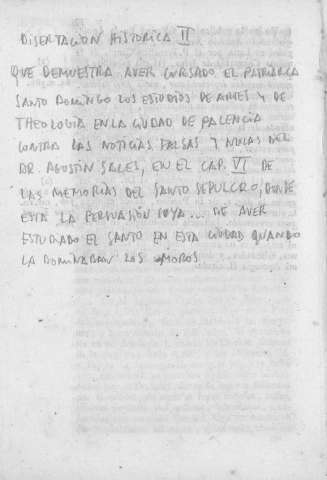 DISERTACION HISTORICA II
QUE DEMUESTRA AVER CURSADO EL PATRIARCA
SANTO DOMINGO LOS ESTUDIOS DE ARTES Y DE
THEOLOGIA EN LA CIUDAD DE PALENCIA
CONTRA LAS NOTICIAS FALSAS Y NULAS DEL
DR. AGUSTIN SALES, EN EL CAP. VI DE
LAS MEMORIAS DEL SANTO SEPULCRO, DONDE
ESTA LA PERSUASIÓN ... DE AVER
ESTUDIADO EL SANTO EN ESTA CIUDAD QUANDO
LA DOMINABAN LOS MOROS